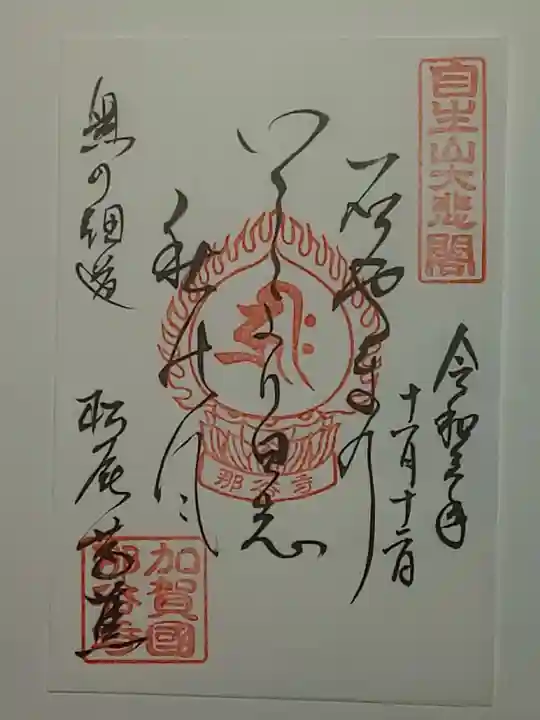 自生山大悲閣
令和三年
十一月十二日
石やまの
いしより白志
秋の風
奥の細道
松尾芭蕉
那谷寺
加賀國
那谷寺